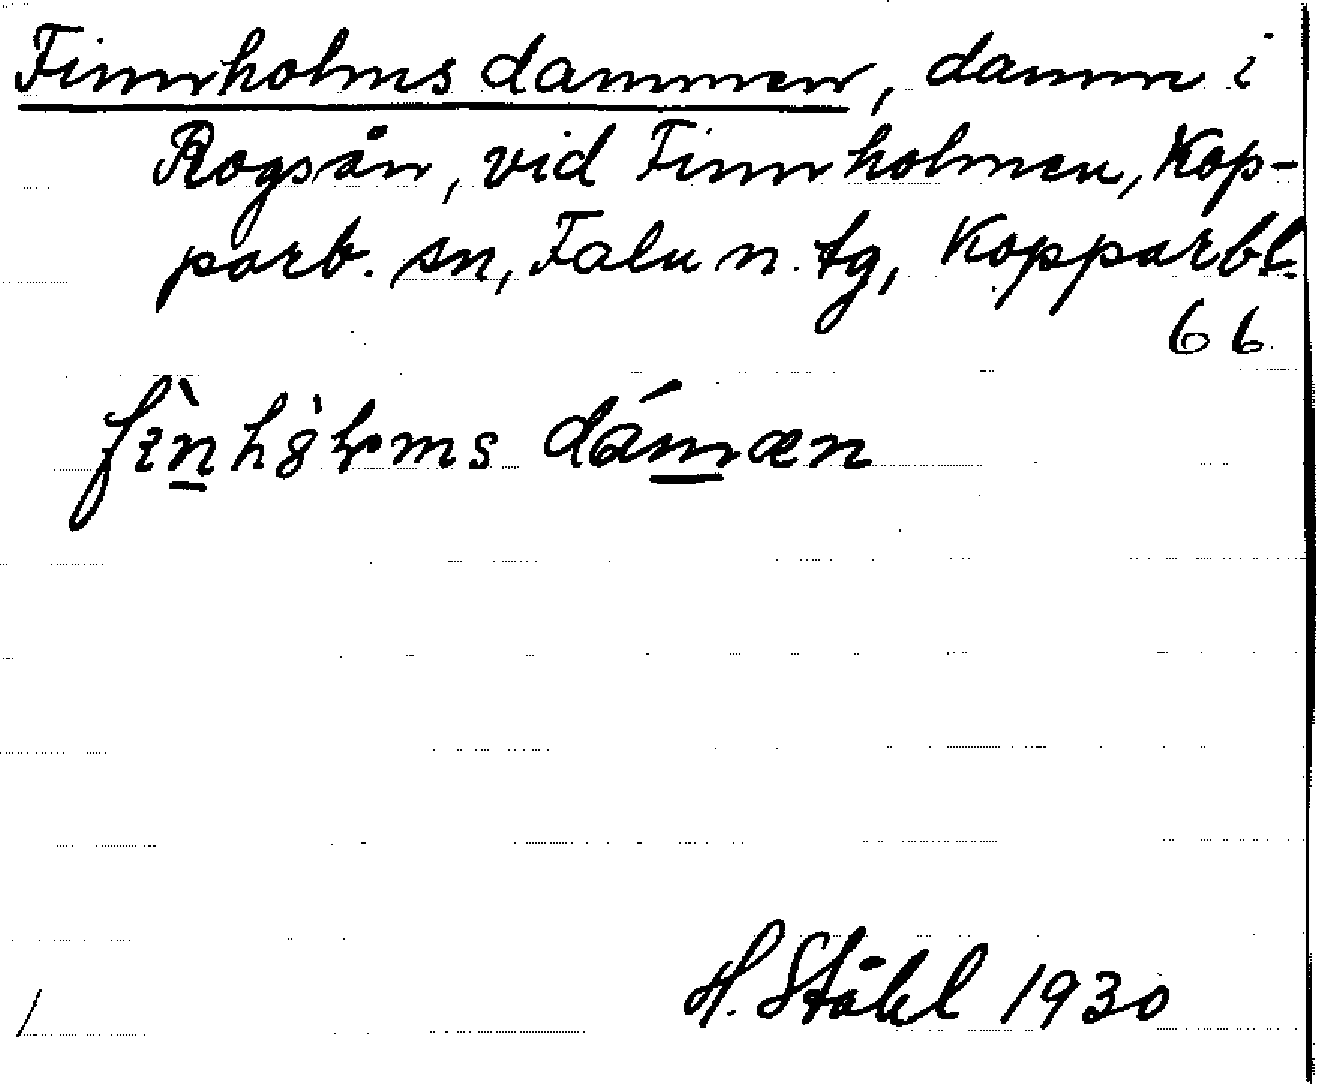 Finnholmsdammen, damm i
Rogsån, vid Finnholmen, Kop-
parb. sn, Falu n. tg, Kopparbl.
66
H. Ståhl 1930